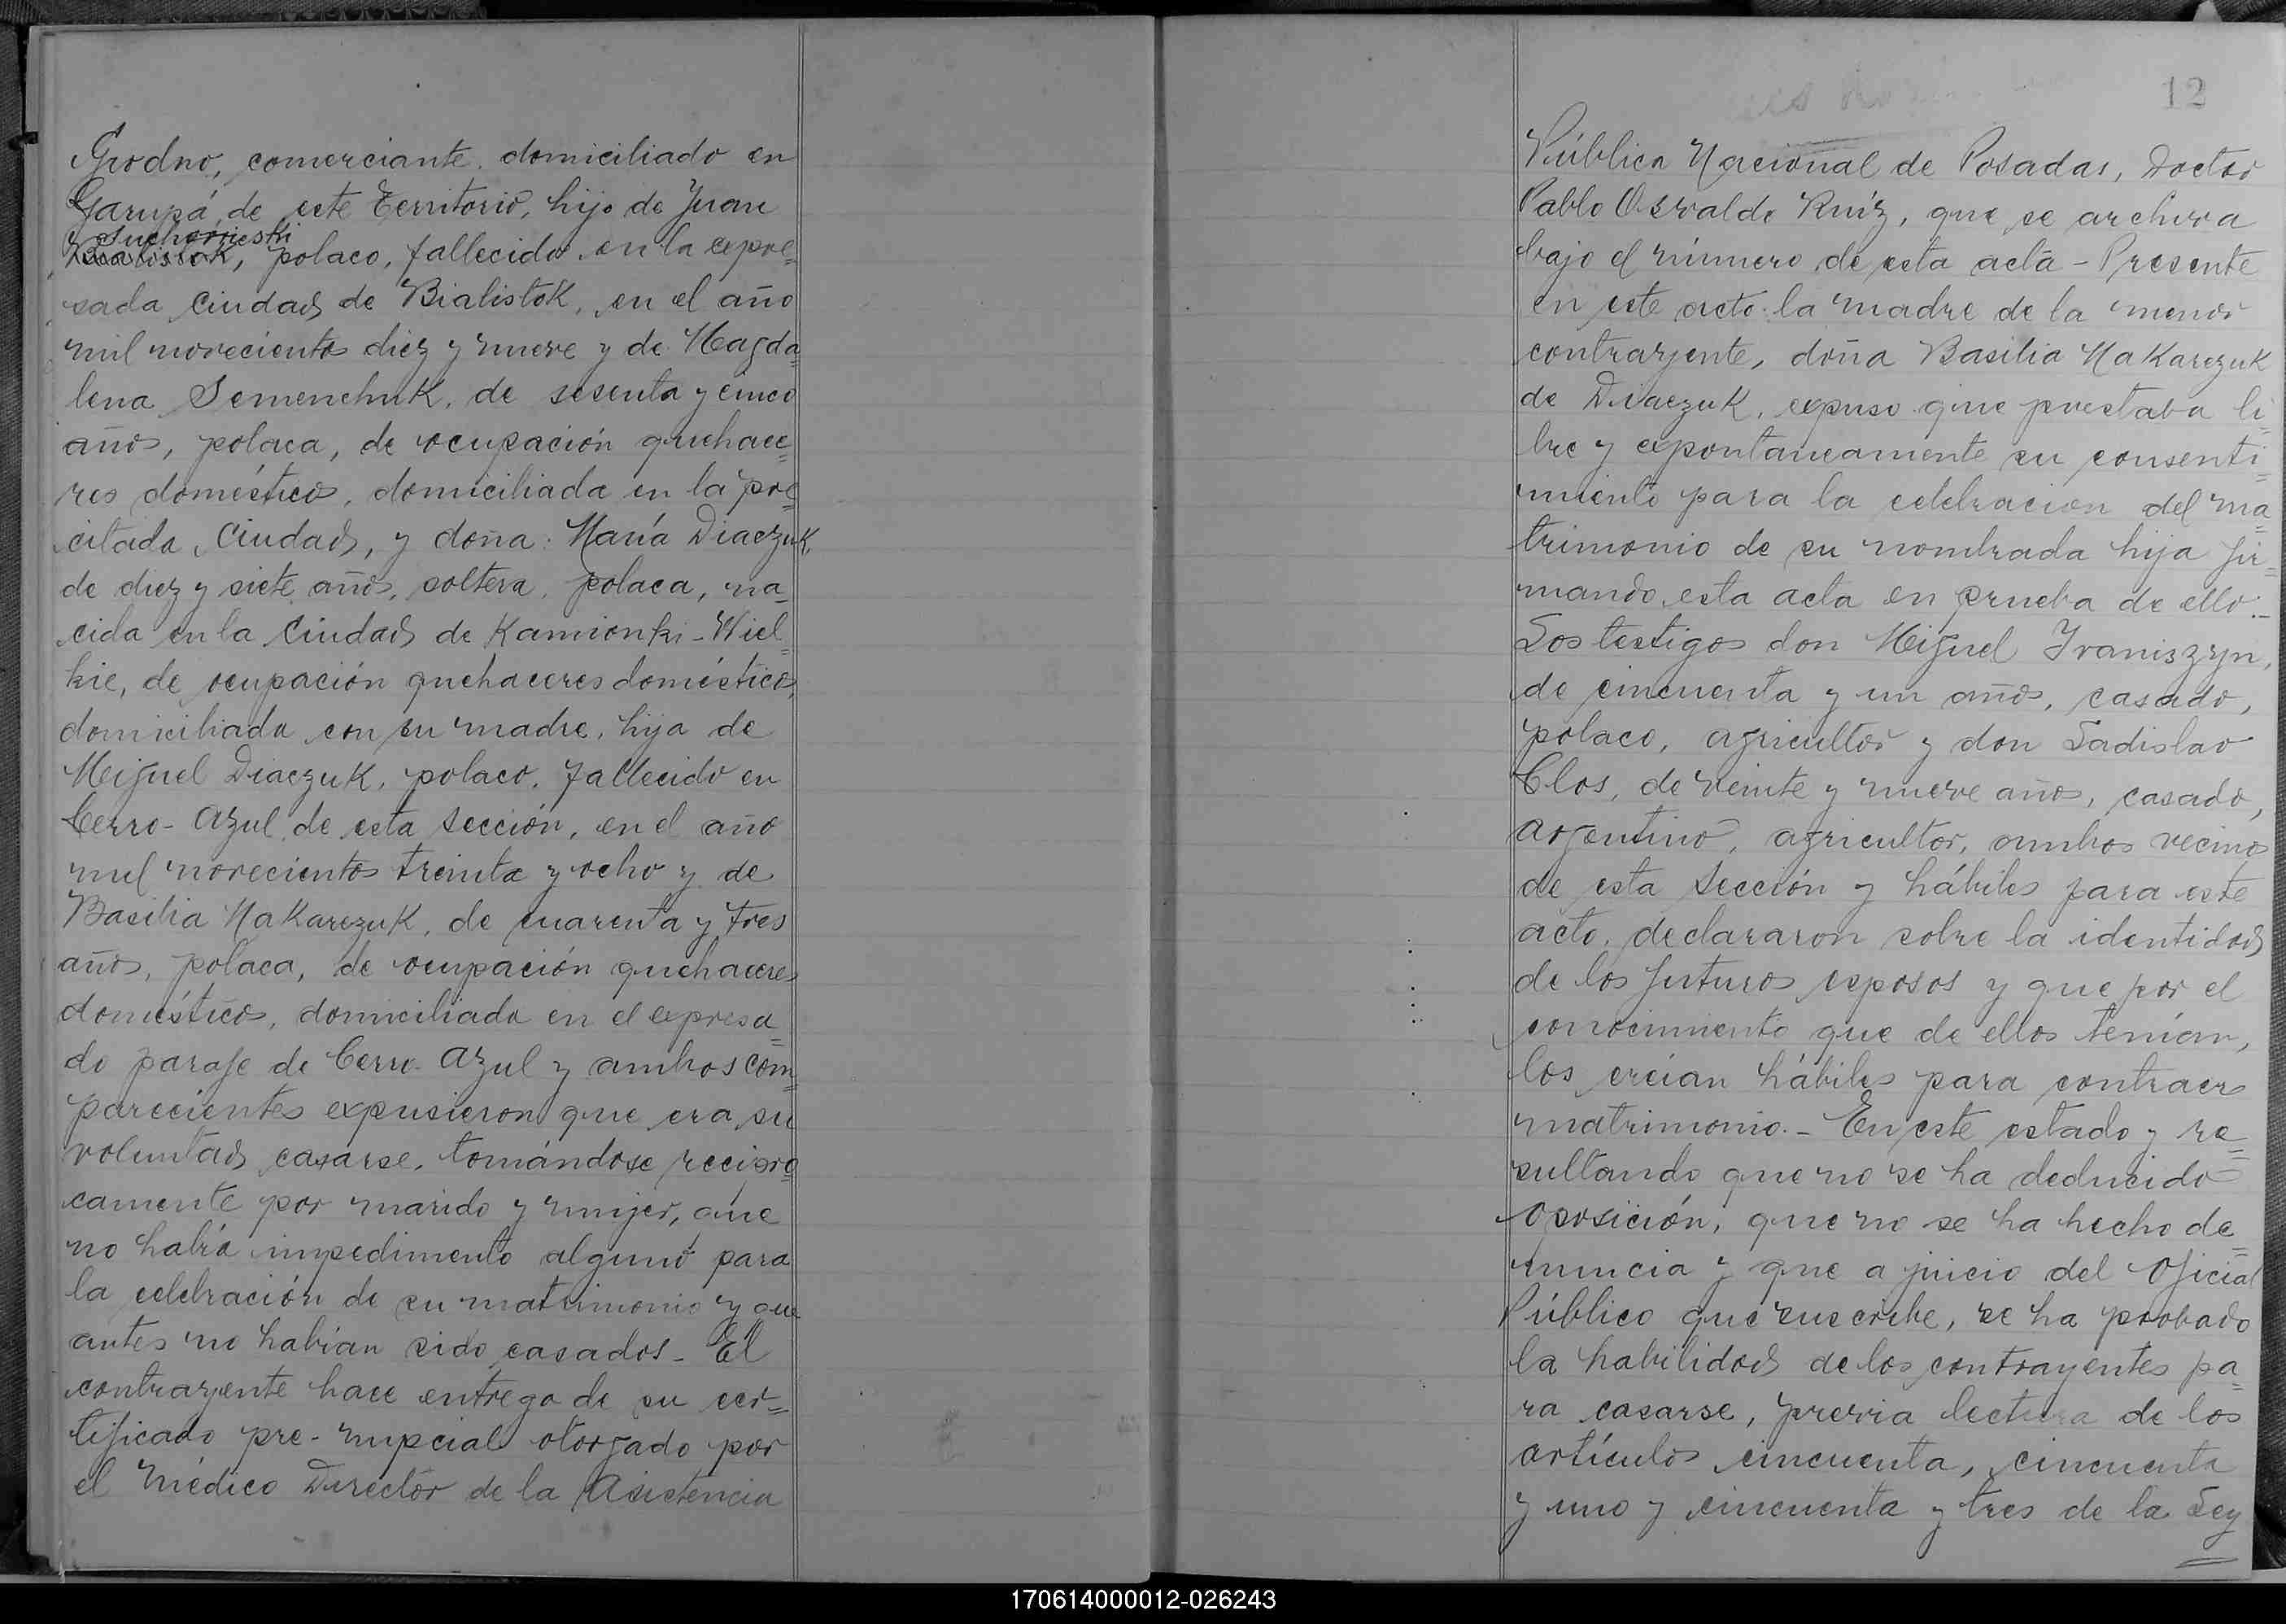 Grodno, comerciante, domiciliado en
Garupá, de este Territorio, hijo de Juan
Suchorzieski
Bialistok, polaco, fallecido en la expre=
sada Ciudad de Bialistok, en el año
mil novecientos diez y nueve y de Magda=
lena Semenchuk, de sesenta y cinco
años, polaca, de ocupación quehace=
res domésticos, domiciliada en la pre=
citada Ciudad, y doña: María Diaczuk,
de diez y siete años, soltera, polaca, na=
cida en la Ciudad de Kamionki-Wiel=
kie, de ocupación quehaceres domésticos,
domiciliada con su madre, hija de
Miguel Diaczuk, polaco, fallecido en
Cerro-Azul de esta Sección, en el año
mil novecientos treinta y ocho y de
Basilia Makarczuk, de cuarenta y tres
años, polaca, de ocupación quehaceres
domésticos, domiciliada en el expresa=
do paraje de Cerro-Azul y ambos com=
parecientes expusieron que era su
voluntad casarse, tomándose recipro=
camente por marido y mujer, que
no había impedimento alguno para
la celebración de su matrimonio y que
antes no habían sido casados.- El
contrayente hace entrega de su cer=
tificado pre-nupcial otorgado por
el Médico Director de la Asistencia
12
Pública Nacional de Posadas, Doctor
Pablo Osvaldo Ruíz, que se archiva
bajo el número de esta acta - Presente
en este acto la madre de la menor
contrayente, doña Basilia Makarczuk
de Diaczuk, expuso que prestaba li=
bre y expontaneamente su consenti=
miento para la celebracion del ma=
trimonio de su nombrada hija fir=
mando esta acta en prueba de ello.-
Los testigos don Miguel Ivaniszyn,
de cincuenta y un años, casado,
polaco, agricultor y don Ladislao
Clos, de veinte y nueve años, casado,
argentino, agricultor, ambos vecinos
de esta Sección y hábiles para este
acto, declararon sobre la identidad
de los futuros esposos y que por el
conocimiento que de ellos tenían,
los creían hábiles para contraer
matrimonio.- En este estado y re=
sultando que no se ha deducido
oposición, que no se ha hecho de=
nuncia y que a juicio del Oficial
Público que suscribe, se ha probado
la habilidad de los contrayentes pa=
ra casarse, previa lectura de los
artículos cincuenta, cincuenta
y uno y cincuenta y tres de la Ley
170614000012-026243